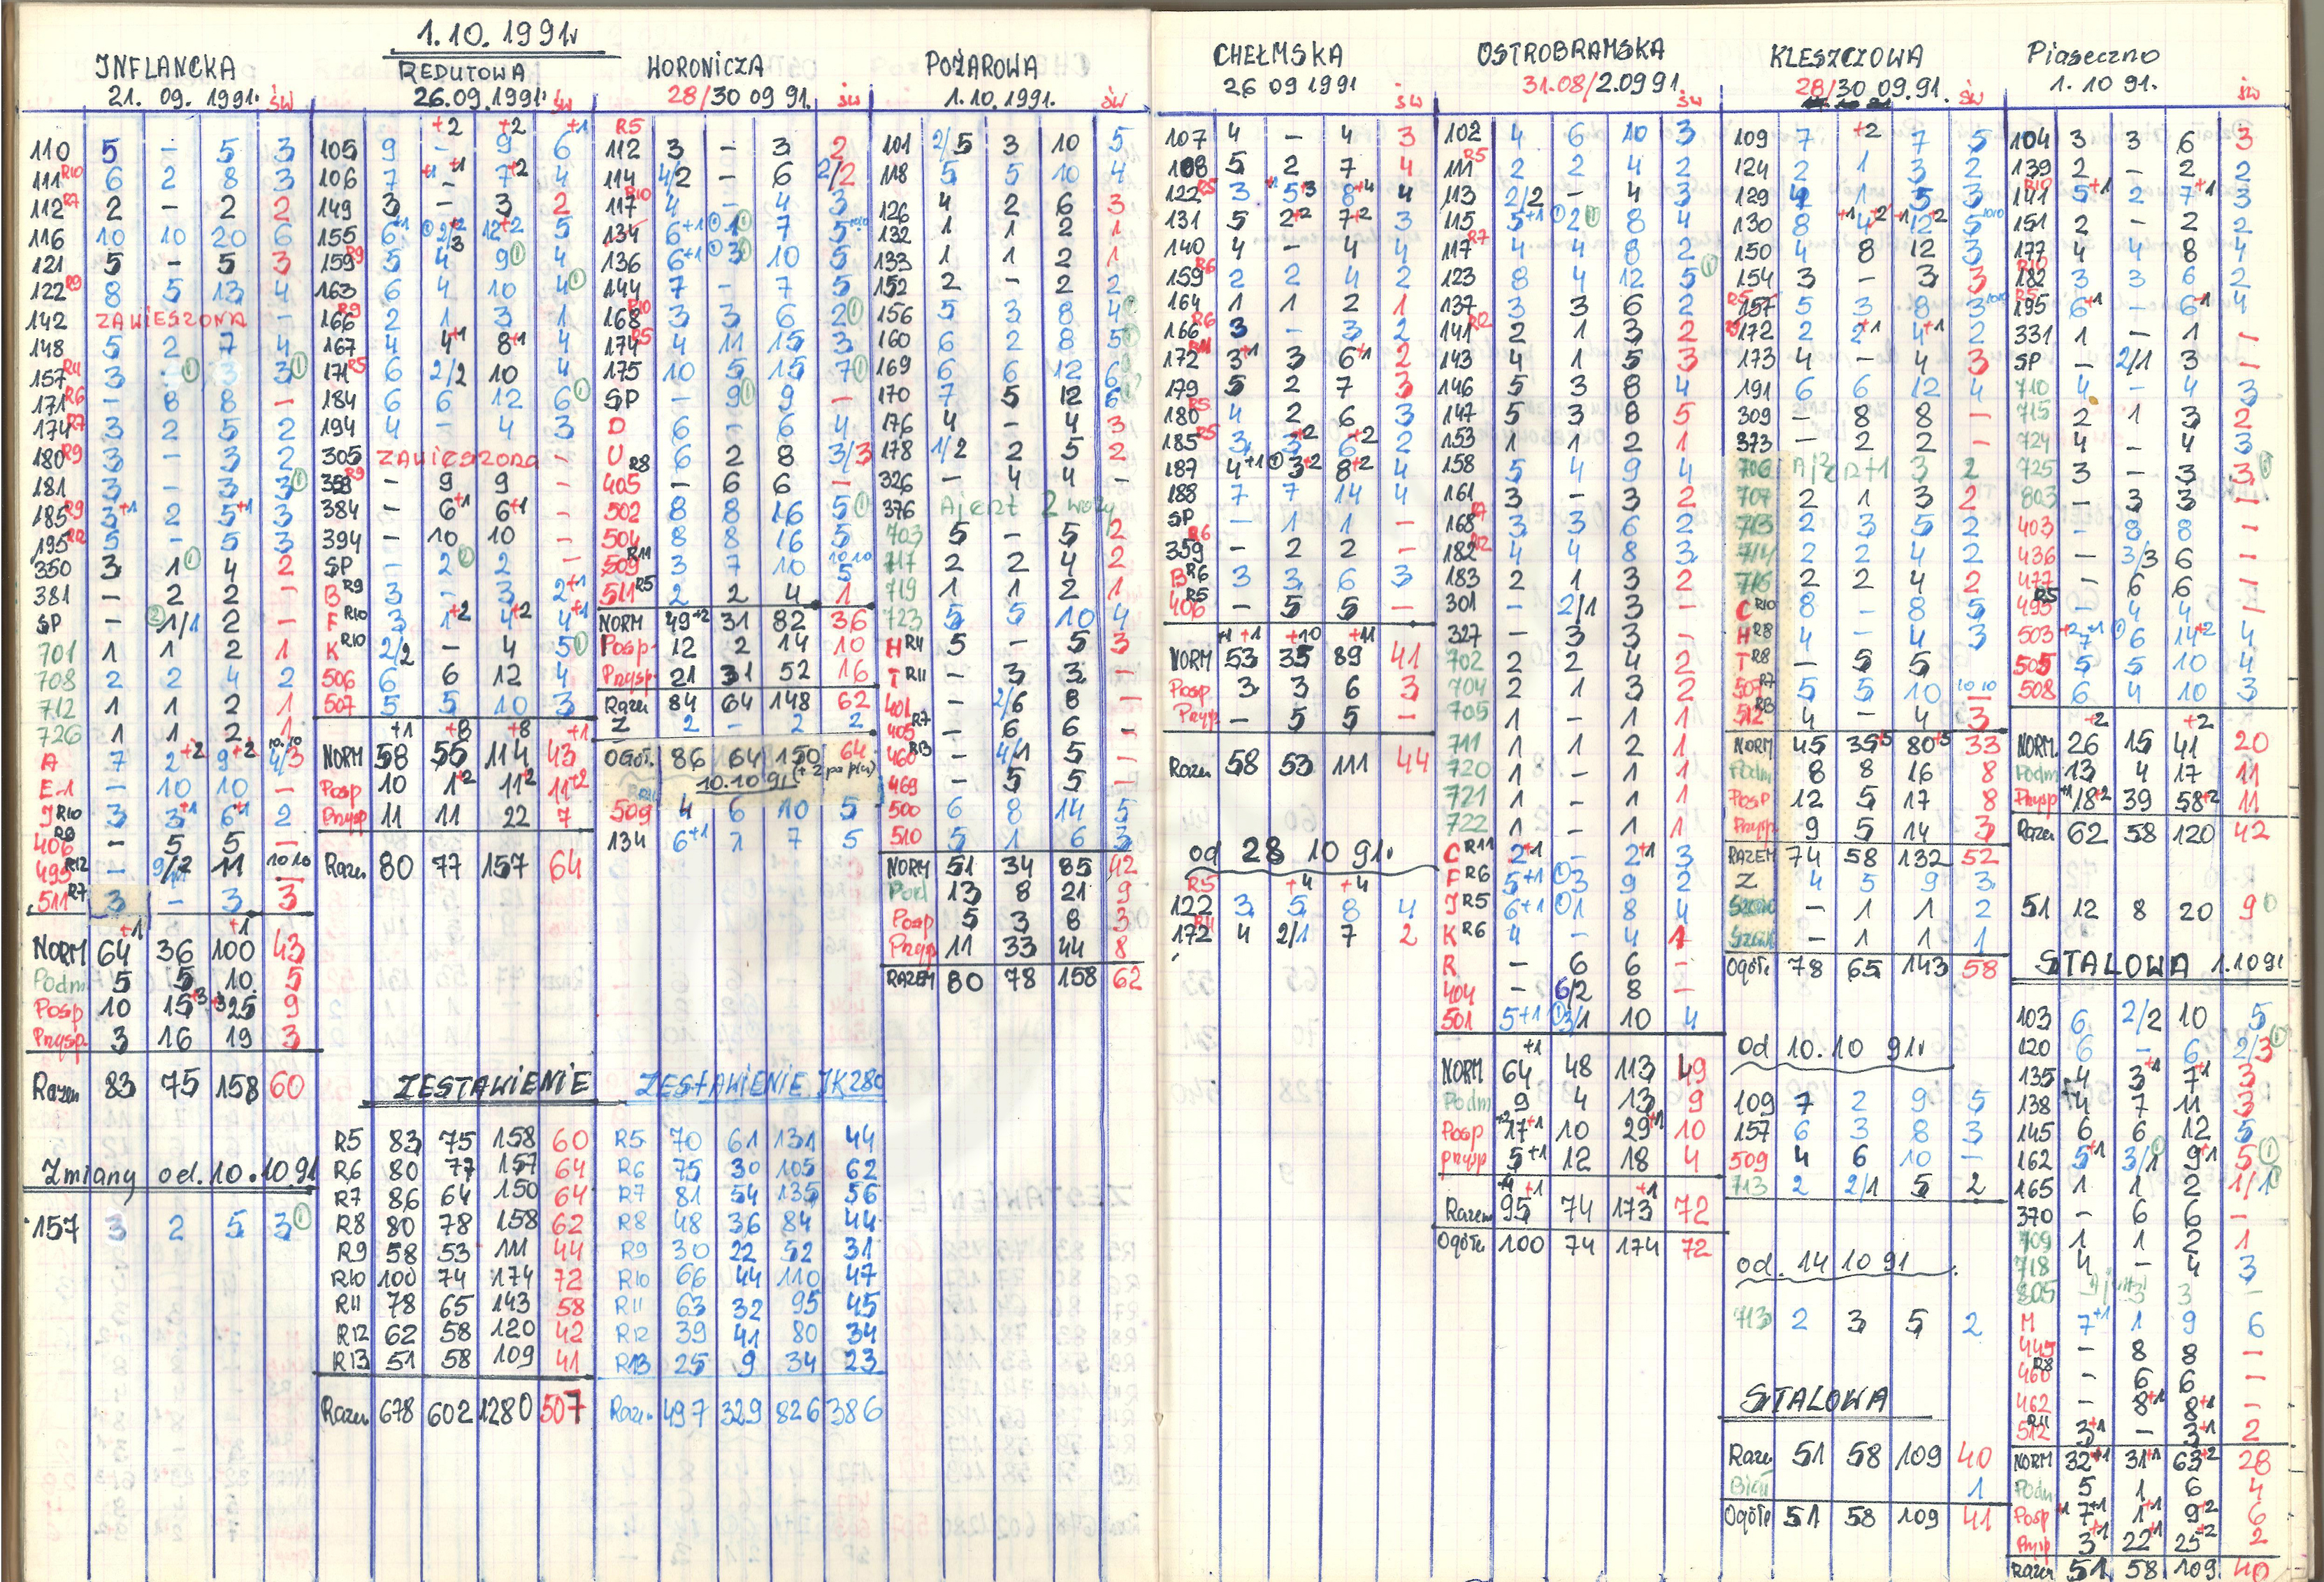 1.10.1991r
INFLANCKA
21. 09. 1991. św
110 5 - 5 3
111 R10 6 2 8 3
112 R7 2 - 2 2
116 10 10 20 6
121 5 - 5 3
122 R9 8 5 13 4
142 ZAWIESZONA -
148 5 2 7 4
157 R11 3 · 3 3
171 R6 - 8 8 -
174 R7 3 2 5 2
180 R9 3 - 3 2
181 3 - 3 3
185 R9 3+1 2 5+1 3
195 R12 5 - 5 3
350 3 1 4 2
381 - 2 2 -
SP - 1/1 2 -
701 1 1 2 1
708 2 2 4 2
712 1 1 2 1
726 1 1 2 1
A 7 2+2 9+2 4/3
E-1 - 10 10 -
J R10 3 3+1 6+1 2
406 R9 - 5 5 -
495 R12 - 9/2 11 -
511 R7 3 - 3 3
NORM 64+1 36 100+1 43
Podm 5 5 10 5
Posp 10 15+3 25+3 9
Przysp 3 16 19 3
Razem 83 75 158 60
Zmiany od. 10.10.91
157 3 2 5 3
REDUTOWA
26.09.1991. św
105 9 -+2 9+2 6+1
106 7+1 -+1 7+2 4
149 3 - 3 2
155 6+1 2/2+2 12+2 5
159 R9 5 4 9 4
163 6 4 10 4
166 R9 2 1 3 1
167 4 4+1 8+1 4
171 R5 6 2/2 10 4
184 6 6 12 6
194 4 - 4 3
305 ZAWIESZONA -
358 R9 - 9 9 -
384 - 6+1 6+1 -
394 - 10 10 -
SP - 2 2 -
B R9 3 - 3 2+1
F R10 3 1+2 4+2 4+1
K R10 2/2 - 4 5
506 6 6 12 4
507 5 5 10 3
NORM 58+1 55+8 114+8 43+1
Posp 10 1+2 11+2 11+2
Przysp 11 11 22 7
Razem 80 77 157 64
ZESTAWIENIE
R5 83 75 158 60
R6 80 77 157 64
R7 86 64 150 64
R8 80 78 158 62
R9 58 53 111 44
R10 100 74 174 72
R11 78 65 143 58
R12 62 58 120 42
R13 51 58 109 41
Razem 678 602 1280 507
WORONICZA
28/30 09 91. św
112 R5 3 - 3 2
114 4/2 - 6 2/2
117 R10 4 - 4 3
134 6+1 1 7 5
136 6+1 3 10 5
144 7 - 7 5
168 R10 3 3 6 2
174 R5 4 11 15 3
175 10 5 15 7
SP - 9 9 -
D 6 - 6 4
U R8 6 2 8 3/3
405 - 6 6 -
502 8 8 16 5
504 8 8 16 5
509 R11 3 7 10 5
511 R5 2 2 4 1
NORM 49+2 31 82 36
Posp 12 2 14 10
Przysp 21 31 52 16
Razem 84 64 148 62
Z 2 - 2 2
OGÓŁ. 86 64 150 64
10.10 91 (+ 2 po płn)
509 4 6 10 5
134 6+1 1 7 5
ZESTAWIENIE IK280
R5 70 61 131 44
R6 75 30 105 62
R7 81 54 135 56
R8 48 36 84 44
R9 30 22 52 31
R10 66 44 110 47
R11 63 32 95 45
R12 39 41 80 34
R13 25 9 34 23
Razem 497 329 826 386
POŻAROWA
1.10.1991. św
101 2/5 3 10 5
118 5 5 10 4
126 4 2 6 3
132 1 1 2 1
133 1 1 2 1
152 2 - 2 2
156 5 3 8 4
160 6 2 8 5
169 6 6 12 6
170 7 5 12 6
176 4 - 4 3
178 1/2 2 5 2
326 - 4 4 -
376 Ajent 2 wozy
703 5 - 5 2
717 2 2 4 2
719 1 1 2 1
723 5 5 10 4
H R11 5 - 5 3
T R11 - 3 3 -
401 - 2/6 8 -
405 R7 - 6 6 -
460 R13 - 4/1 5 -
469 - 5 5 -
500 6 8 14 5
510 5 1 6 3
NORM 51 34 85 42
Pod 13 8 21 9
Posp 5 3 8 3
Przysp 11 33 44 8
RAZEM 80 78 158 62
CHEŁMSKA
26 09 1991 św
107 4 - 4 3
108 5 2 7 4
122 R5 3+1 5+3 8+4 4
131 5 2+2 7+2 3
140 4 - 4 4
159 R6 2 2 4 2
164 1 1 2 1
166 R6 3 - 3 2
172 R11 3+1 3 6+1 2
179 5 2 7 3
180 R5 4 2 6 3
185 R5 3 3+2 6+2 2
187 4+1 3+2 8+2 4
188 7 7 14 4
SP - 1 1 -
359 R6 - 2 2 -
B R6 3 3 6 3
406 R5 - 5 5 -
NORM 53+1+1 35+10 89+11 41
Posp 3 3 6 3
Przysp - 5 5 -
Razem 58 53 111 44
od 28 10 91r
122 R5 3 5+4 8+4 4
172 R11 4 2/1 7 2
OSTROBRAMSKA
31.08/2.09 91. św
102 4 6 10 3
111 R5 2 2 4 2
113 2/2 - 4 3
115 5+1 2 8 4
117 R7 4 4 8 2
123 8 4 12 5
137 3 3 6 2
141 R12 2 1 3 2
143 4 1 5 3
146 5 3 8 4
147 5 3 8 5
153 1 1 2 1
158 5 4 9 4
161 3 - 3 2
168 R7 3 3 6 2
182 R12 4 4 8 3
183 2 1 3 2
301 - 2/1 3 -
327 - 3 3 -
702 2 2 4 2
704 2 1 3 2
705 1 - 1 1
711 1 1 2 1
720 1 - 1 1
721 1 - 1 1
722 1 - 1 1
C R11 2+1 - 2+1 3
F R6 5+1 3 9 2
J R5 6+1 1 8 4
K R6 4 - 4 1
R - 6 6 -
404 - 6/2 8 -
501 5+1 3/1 10 4
NORM 64+1 48 113 49
Podm 9 4 13 9
Posp 17+1 10 29+1 10
przysp 5+1 12 18 4
Razem 95+1 74 173+1 72
Ogółe 100 74 174 72
KLESZCZOWA
28/30 09.91. św
109 7 +2 7 5
124 2 1 3 2
129 4 1 5 3
130 8+1 4+2 12+2 5
150 4 8 12 3
154 3 - 3 3
157 R5 5 3 8 3
172 R9 2 2+1 4+1 2
173 4 - 4 3
191 6 6 12 4
309 - 8 8 -
373 - 2 2 -
706 3 2
707 2 1 3 2
713 2 3 5 2
714 2 2 4 2
716 2 2 4 2
C R10 8 - 8 5
H R8 4 - 4 3
T R8 - 5 5 -
507 R7 5 5 10
512 R13 4 - 4 3
NORM 45 35+5 80+5 33
Podm 8 8 16 8
Posp 12 5 17 8
Przysp 9 5 14 3
RAZEM 74 58 132 52
Z 4 5 9 3
- 1 1 2
- 1 1 1
Ogółe 78 65 143 58
od 10.10 91r
109 7 2 9 5
157 6 3 8 3
509 4 6 10 -
713 2 2/1 5 2
od. 14 10 91
713 2 3 5 2
STALOWA
Razem 51 58 109 40
1
Ogółe 51 58 109 41
Piaseczno
1. 10 91. św
104 3 3 6 3
139 2 - 2 2
141 R10 5+1 2 7+1 3
151 2 - 2 2
177 4 4 8 4
182 R10 3 3 6 2
195 R5 6+1 - 6+1 4
331 1 - 1 -
SP - 2/1 3 -
710 4 - 4 3
715 2 1 3 2
724 4 - 4 3
725 3 - 3 3
803 - 3 3 -
403 - 8 8 -
436 - 3/3 6 -
477 - 6 6 -
495 R5 - 4 4 -
503 7+1 6 14+2 4
505 5 5 10 4
508 6 4 10 3
NORM. 26+2 15 41+2 20
Podm 13 4 17 11
Przysp 18+2 39 58+2 11
Razem 62 58 120 42
51 12 8 20 9
STALOWA 1.10 91
103 6 2/2 10 5
120 6 - 6 2/3
135 4 3+1 7+1 3
138 4 7 11 3
145 6 6 12 5
162 5+1 3/1 9+1 5
165 1 1 2 1/1
370 - 6 6 -
709 1 1 2 1
718 4 - 4 3
805 3 3 -
M 7+1 1 9 6
445 - 8 8 -
460 R8 - 6 6 -
462 - 8+1 8+1 -
512 R11 3+1 - 3+1 2
NORM 32+1 31+1 63+2 28
Podm 5 1 6 4
Posp 7+1 1+1 9+2 6
Przysp 3+1 22+1 25+2 2
Razem 51 58 109 40